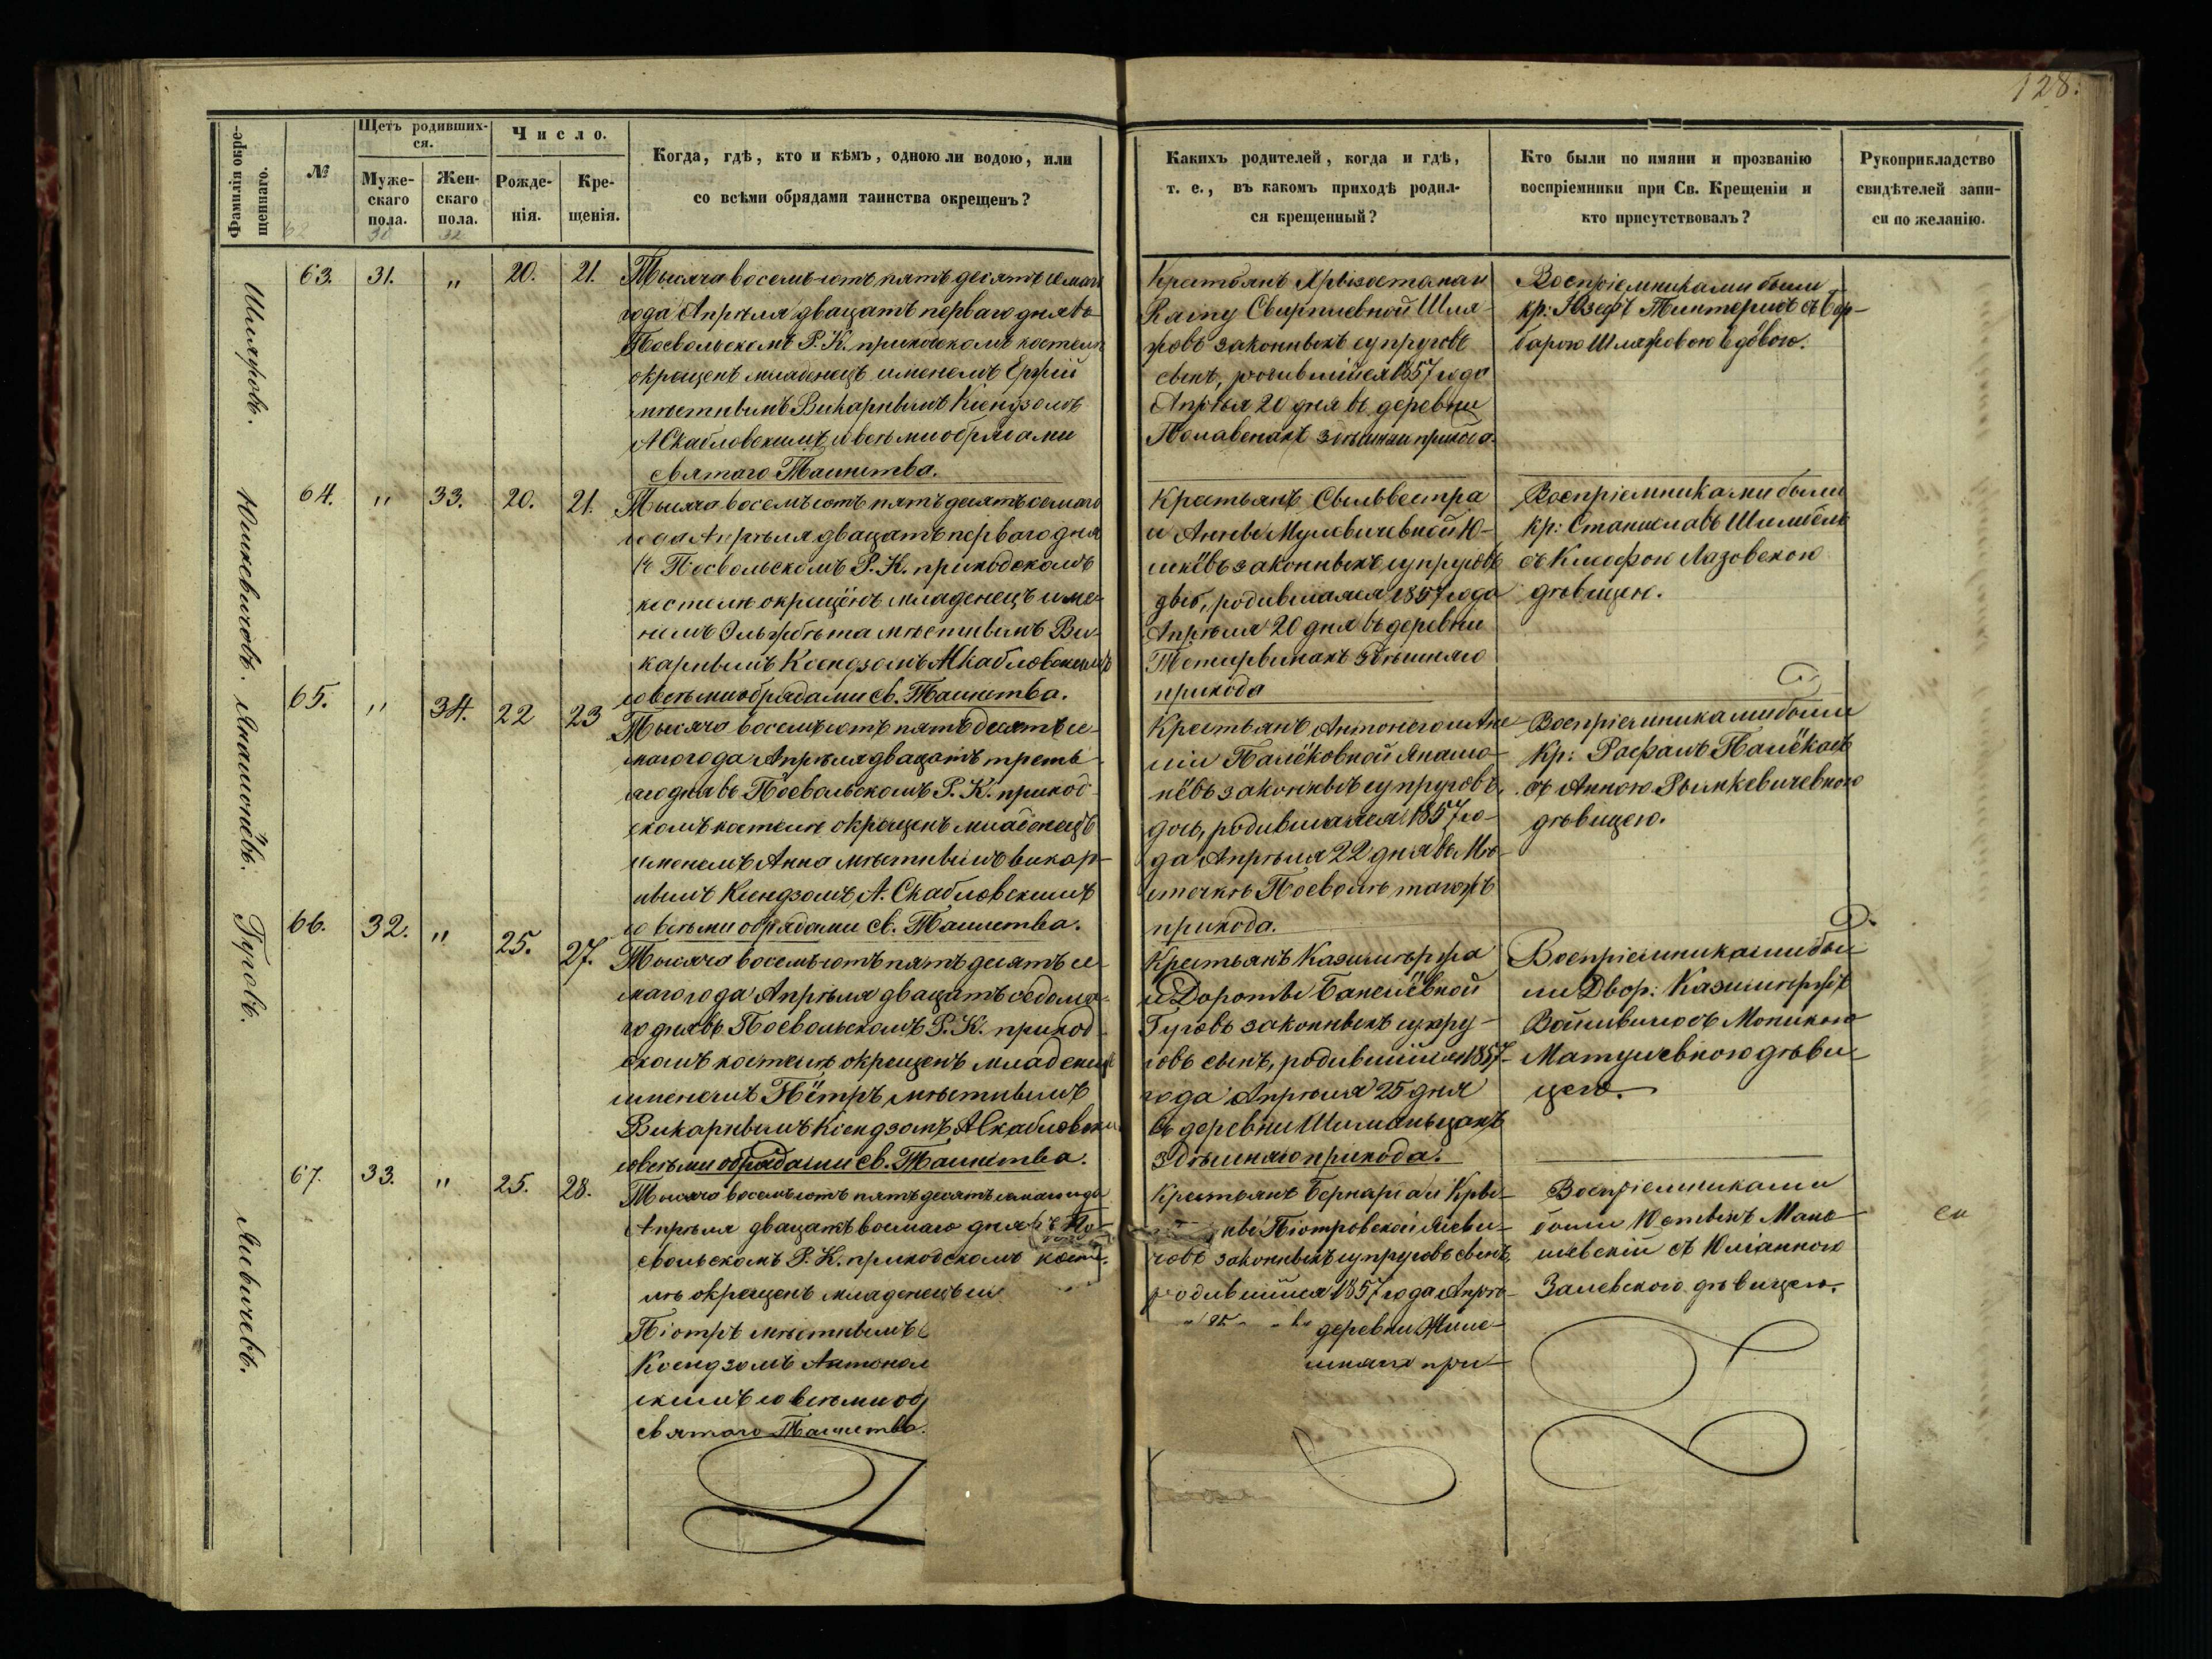 128.
Фамилія окре-
щеннаго.
№
Щетъ родивших-
ся.
Муже-
скаго
пола.
Жен-
скаго
пола.
Число.
Рожде-
нія.
Кре-
щенія.
Когда, гдѣ, кто и кѣмъ, одною ли водою, или
со всѣми обрядами таинства окрещенъ?
Какихъ родителей, когда и гдѣ,
т. е., въ какомъ приходѣ родил-
ся крещенный?
Кто были по имяни и прозванію
воспріемники при Св. Крещеніи и
кто присутствовалъ?
Рукоприкладство
свидѣтелей запи-
си по желанію.
62 30 32
63. 31. " 20. 21.
Тысяча восемьсотъ пятьдесятъ семаго
года Апрѣля двацать перваго дня въ
Посвольскомъ Р. К. приходскомъ костелѣ
окрещенъ младенецъ именемъ Ержій
мѣстнымъ Викарнымъ Ксендзомъ
А Скабловскимъ со всѣми обрядами
святаго Таинства.
Крестьянъ
Свирплевной Шля-
жовъ законныхъ супруговъ
сынъ, родившійся 1857 года
Апрѣля 20 дня въ деревни
здѣшняго прихода.
Воспріемниками были
кр: Юзефъ съ Бар-
барою Шляжовою вдовою.
64. " 33. 20. 21.
Тысяча восемьсотъ пятьдесятъ семаго
года Апрѣля двацать перваго дня
въ Посвольскомъ Р. К. приходскомъ
костелѣ окрещёнъ младенецъ име-
немъ Эльжбѣта мѣстнымъ Ви-
карнымъ Ксендзомъ А Скабловскимъ
со всѣми обрядами св. Таинства.
Крестьянъ Сыльвестра
и Анны Мулевичевной Ю-
законныхъ супруговъ
дочь, родившаяся 1857 года
Апрѣля 20 дня въ деревни
здѣшняго
прихода
Воспріемниками были
кр: Станиславъ
съ Клеофою Лазовскою
дѣвицею.
Янамонёвъ.
65. " 34. 22 23
Тысяча восемьсотъ пятьдесятъ се-
маго года Апрѣля двацать треть-
яго дня въ Посвольскомъ Р. К. приход-
скомъ костелѣ окрещенъ младенецъ
именемъ Анна мѣстнымъ викар-
нымъ Ксендзомъ А. Скабловскимъ
со всѣми обрядами св. Таинства.
Крестьянъ Антонего и Ане
ліи Палёковной Янамо-
нёвъ законныхъ супруговъ,
дочь, родившаяся 1857 го-
да Апрѣля 22 дня въ Мѣ-
стечкѣ Посволѣ тогожъ
прихода.
Воспріемниками были
Кр: Рафалъ Палёкасъ
съ Анною Рымкевичевною
дѣвицею.
Гуговъ.
66. 32. " 25. 27.
Тысяча восемьсотъ пятьдесятъ се-
маго года Апрѣля двацать седома-
го дня въ Посвольскомъ Р. К. приход-
скомъ костелѣ окрещенъ младенецъ
именемъ Пётръ, мѣстнымъ
Викарнымъ Ксендзомъ А Скабловским
со всѣми обрядами св. Таинства.
Крестьянъ Казимѣржа
и Дороты
Гуговъ законныхъ супру-
говъ сынъ, родившійся 1857
года Апрѣля 25 дня
въ деревни
здѣшняго прихода.
Воспріемниками бы-
ли Двор: Казимѣржъ
съ Моникою
дѣви-
цею.
67. 33. " 25. 28.
Тысяча восемьсотъ пятьдесятъ семаго года
Апрѣля двацать восмаго дня въ По-
свольскомъ Р. К. приходскомъ косте-
лѣ окрещенъ младенецъ и
Піотръ мѣстнымъ
Ксендзомъ Антоном
скимъ со всѣми об
святаго Таинства.
Крестьянъ Бернарда и Кры-
Піотровской
законныхъ супруговъ сынъ,
родившійся 1857 года Апрѣ-
деревни
шняго при-
Воспріемниками
были Юстынъ
съ Юліанною
Залевскою дѣвицею.